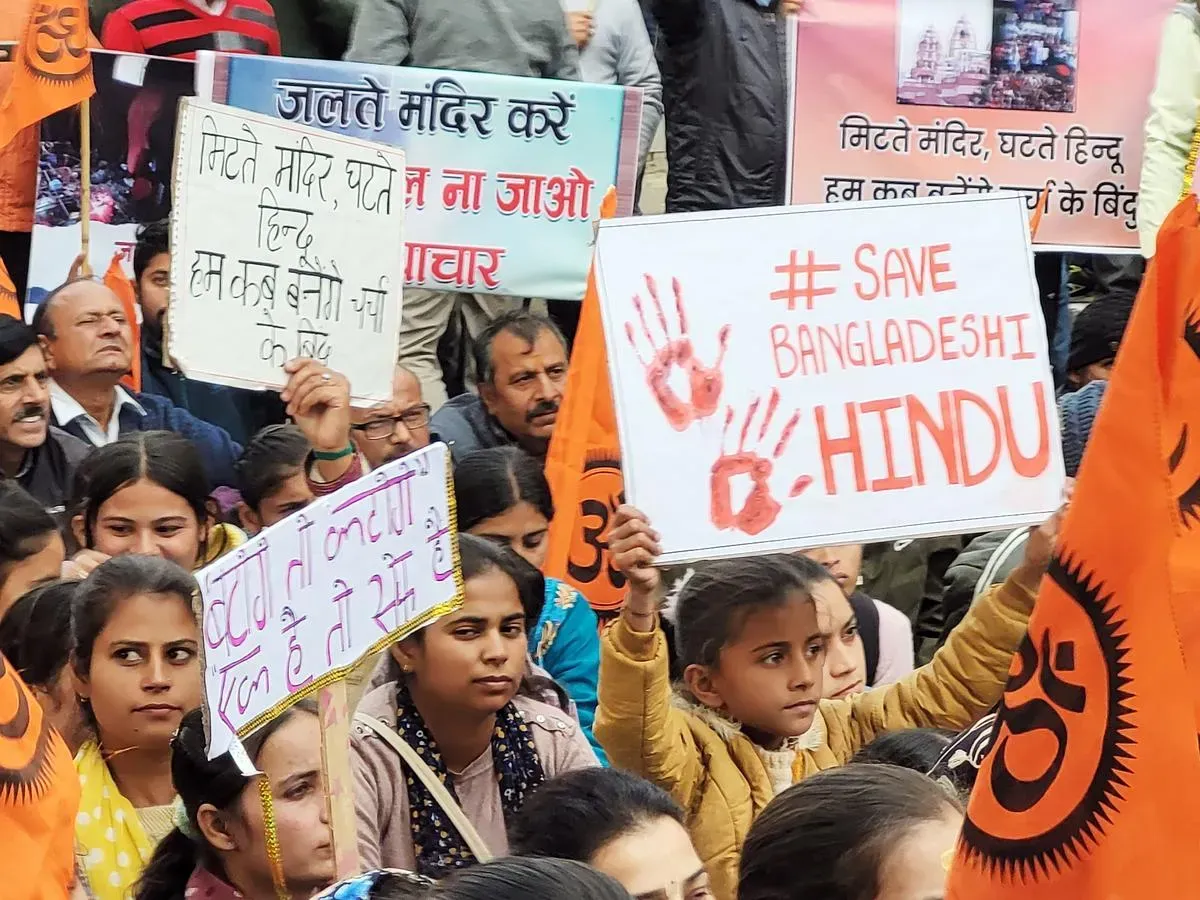 जलते मंदिर करें
ना जाओ
मिटते मंदिर, घटते
हिन्दू
हम कब बनेंगे चर्चा
के बिंदु
मिटते मंदिर, घटते हिन्दू
हम कब बनेंगे चर्चा के बिंदु
# SAVE
BANGLADESHI
HINDU
बटोगे तो कटोगे"
"एक है तो सेफ है
ॐ
ॐ
ॐ